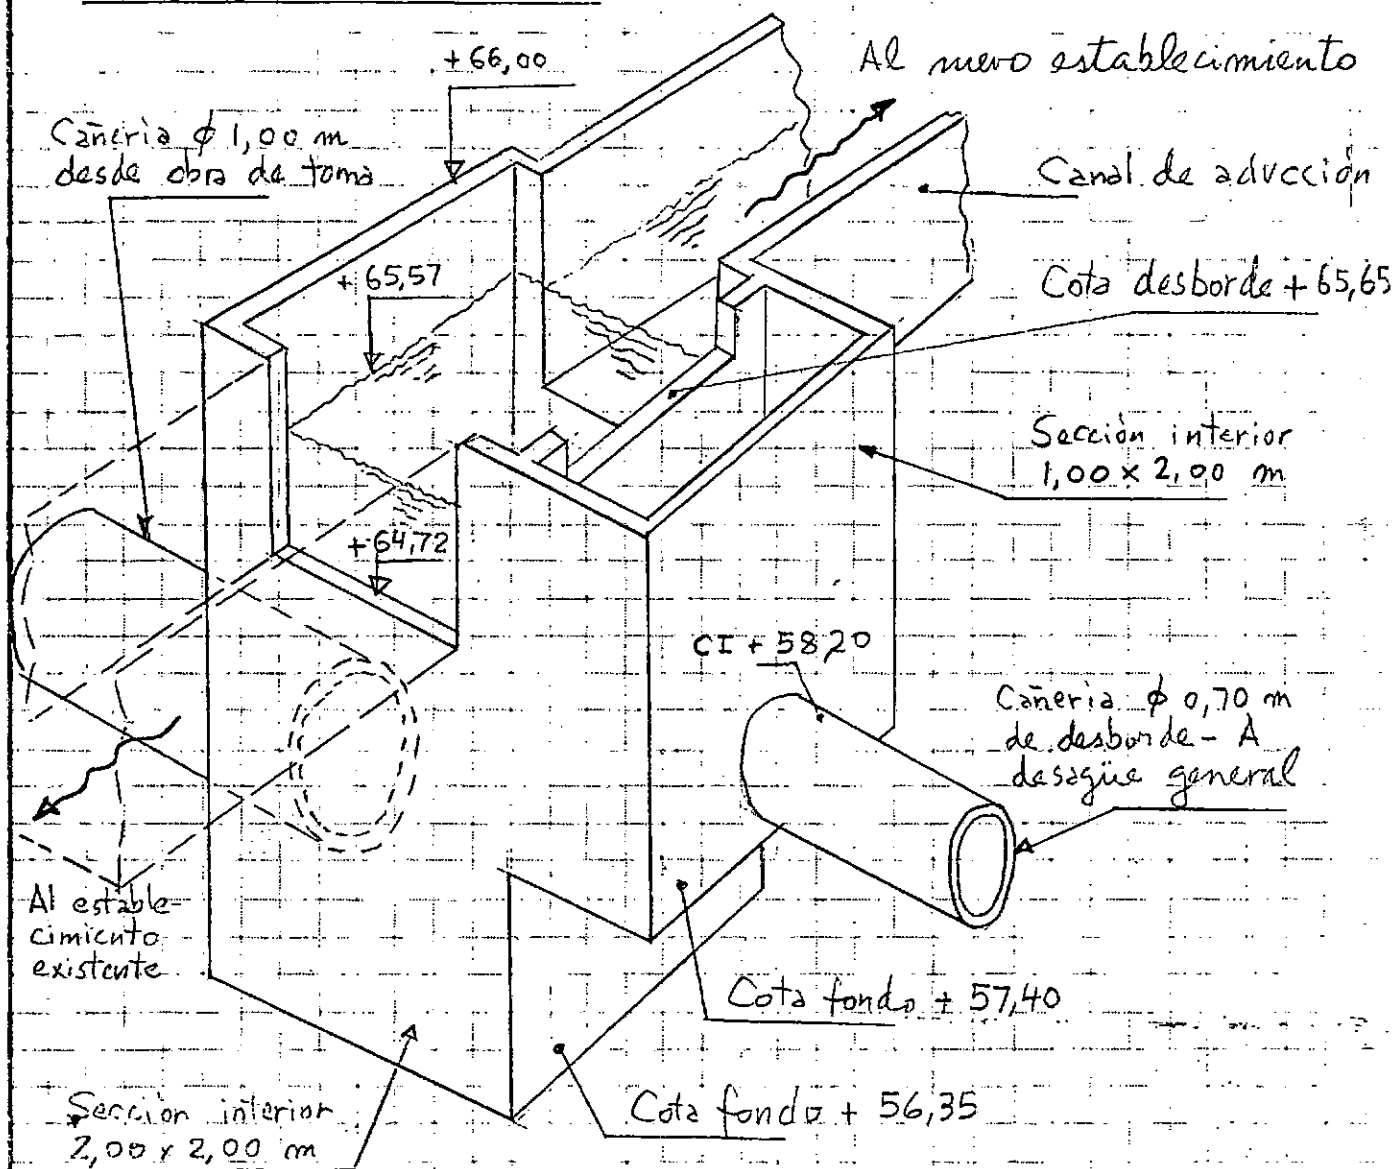 + 66,00
Al nuevo establecimiento
Cañeria ϕ 1,00 m
desde obra de toma
Canal de aducción
+ 65,57
Cota desborde + 65,65
Sección interior
1,00 x 2,00 m
+ 64,72
CI + 58,20
Cañeria ϕ 0,70 m
de desborde - A
desagüe general
Al estable-
cimiento
existente
Cota fondo + 57,40
Cota fondo + 56,35
Sección interior
2,00 x 2,00 m